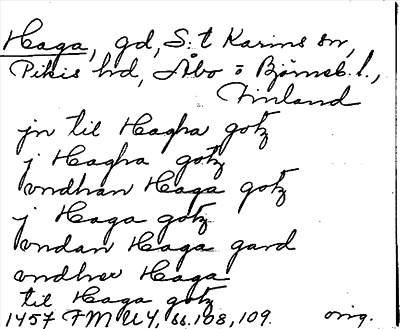 Haga, gd, S:t Karins sn,
Pikis hd, Åbo o Björneb. l.,
Finland
jn til Hagha gotz
j Hagha gotz
vndhan Haga gotz
j Haga gotz
vndan Haga gard
vndher Haga
til Haga gotz
1457 FMU 4, ss. 108, 109. orig.